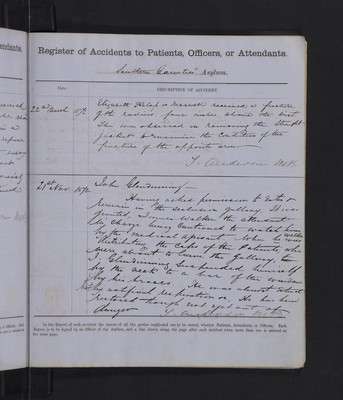 Register of Accidents to Patients, Officers, or Attendants.
Southern Counties' Asylum.
Date
DESCRIPTION OF ACCIDENT.
22nd March 1872
Elizabeth or Maxwell received a fracture
of the radius four inches above the wrist
She was observed in removing the Strait
jacket to examine the condition of the
fracture of the opposite arm
J. Anderson M.B.
21st Nov. 1872
John Glendinning
Having asked permission to
remain in the gallery it was
granted. Walker the attendant
in charge being cautioned to watch him
by the medical Assistant. When he was
distributing the Caps to the patients who
were about to leave the gallery, to
J. Glendinning suspended himself
by the neck to a bar of the window
by his braces. He was almost
by artificial respiration. He has been
restored though not yet out of
danger
In the Report of each accident the names of all the parties implicated are to be stated, whether Patients, Attendants, or Officers. Each
Report is to be signed by an Officer of the Asylum, and a line drawn along the page after each accident when more than one is entered on
the same page.